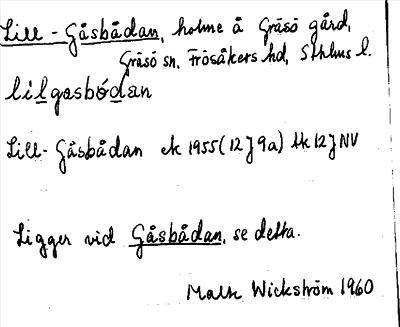 Lill-Gåsbådan, holme å Gräsö gård,
Gräsö sn, Frösåkers hd, Sthlms l.
lilgasbódan
Lill-Gåsbådan ek 1955 (12J 9a) tk 12J NV
Ligger vid Gåsbådan, se detta.
Wickström 1960